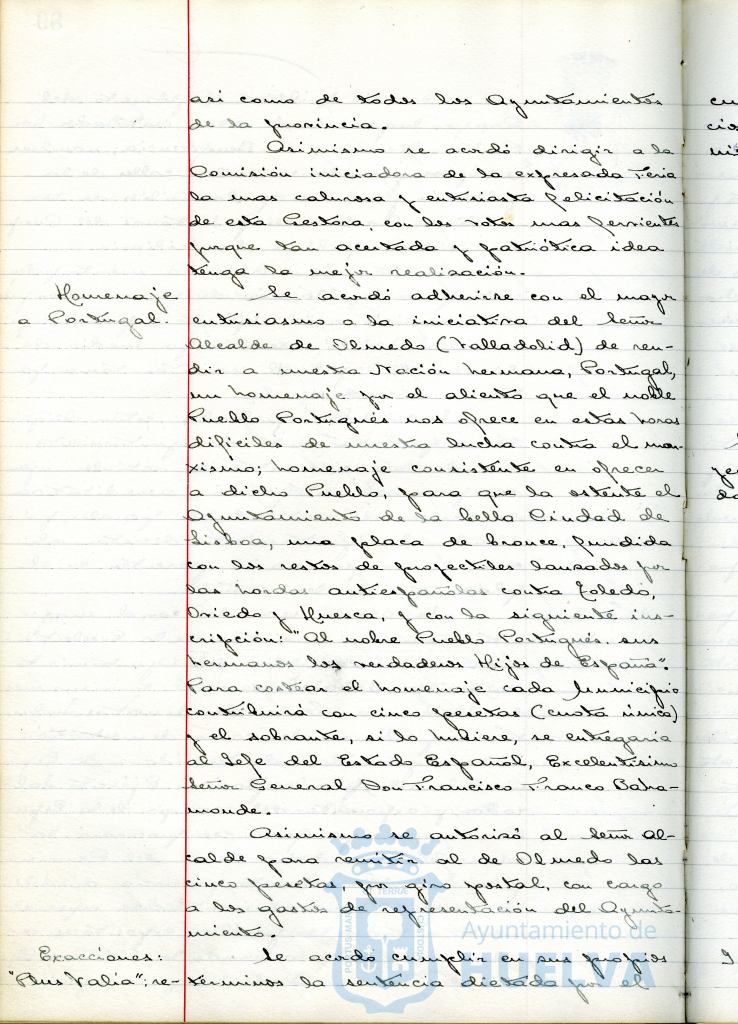 asi como de todos los Ayuntamientos
de la provincia.
Asimismo se acordó dirigir a la
Comisión iniciadora de la expresada Feria
la mas calurosa y entusiasta felicitación
de esta Gestora, con los votos mas fervientes
porque tan acertada y patriótica idea
tenga la mejor realización.
Homenaje
a Portugal.
Se acordó adherirse con el mayor
entusiasmo a la iniciativa del Señor
Alcalde de Olmedo (Valladolid) de ren-
dir a nuestra Nación hermana, Portugal,
un homenaje por el aliento que el noble
Pueblo Portugués nos ofrece en estas horas
dificiles de nuestra lucha contra el mar-
xismo; homenaje consistente en ofrecer
a dicho Pueblo, para que la ostente el
Ayuntamiento de la bella Ciudad de
Lisboa, una placa de bronce, fundida
con los restos de proyectiles lanzados por
las hordas antiespañolas contra Toledo,
Oviedo y Huesca, y con la siguiente ins-
cripción: "Al nobre Pueblo Portugués. sus
hermanos los verdaderos Hijos de España".
Para costear el homenaje cada Municipio
contribuirá con cinco pesetas (cuota única)
y el sobrante, si lo hubiere, se entregaria
al Jefe del Estado Español, Excelentísimo
Señor General Don Francisco Franco Baha-
monde.
Asimismo se autorizó al Señor Al-
calde para remitir al de Olmedo las
cinco pesetas, por giro postal, con cargo
a los gastos de representación del Ayunta-
miento.
Exacciones:
"Plus Valia": re-
Se acordo cumplir en sus propios
terminos la sentencia dictada por el
Ayuntamiento de
HUELVA